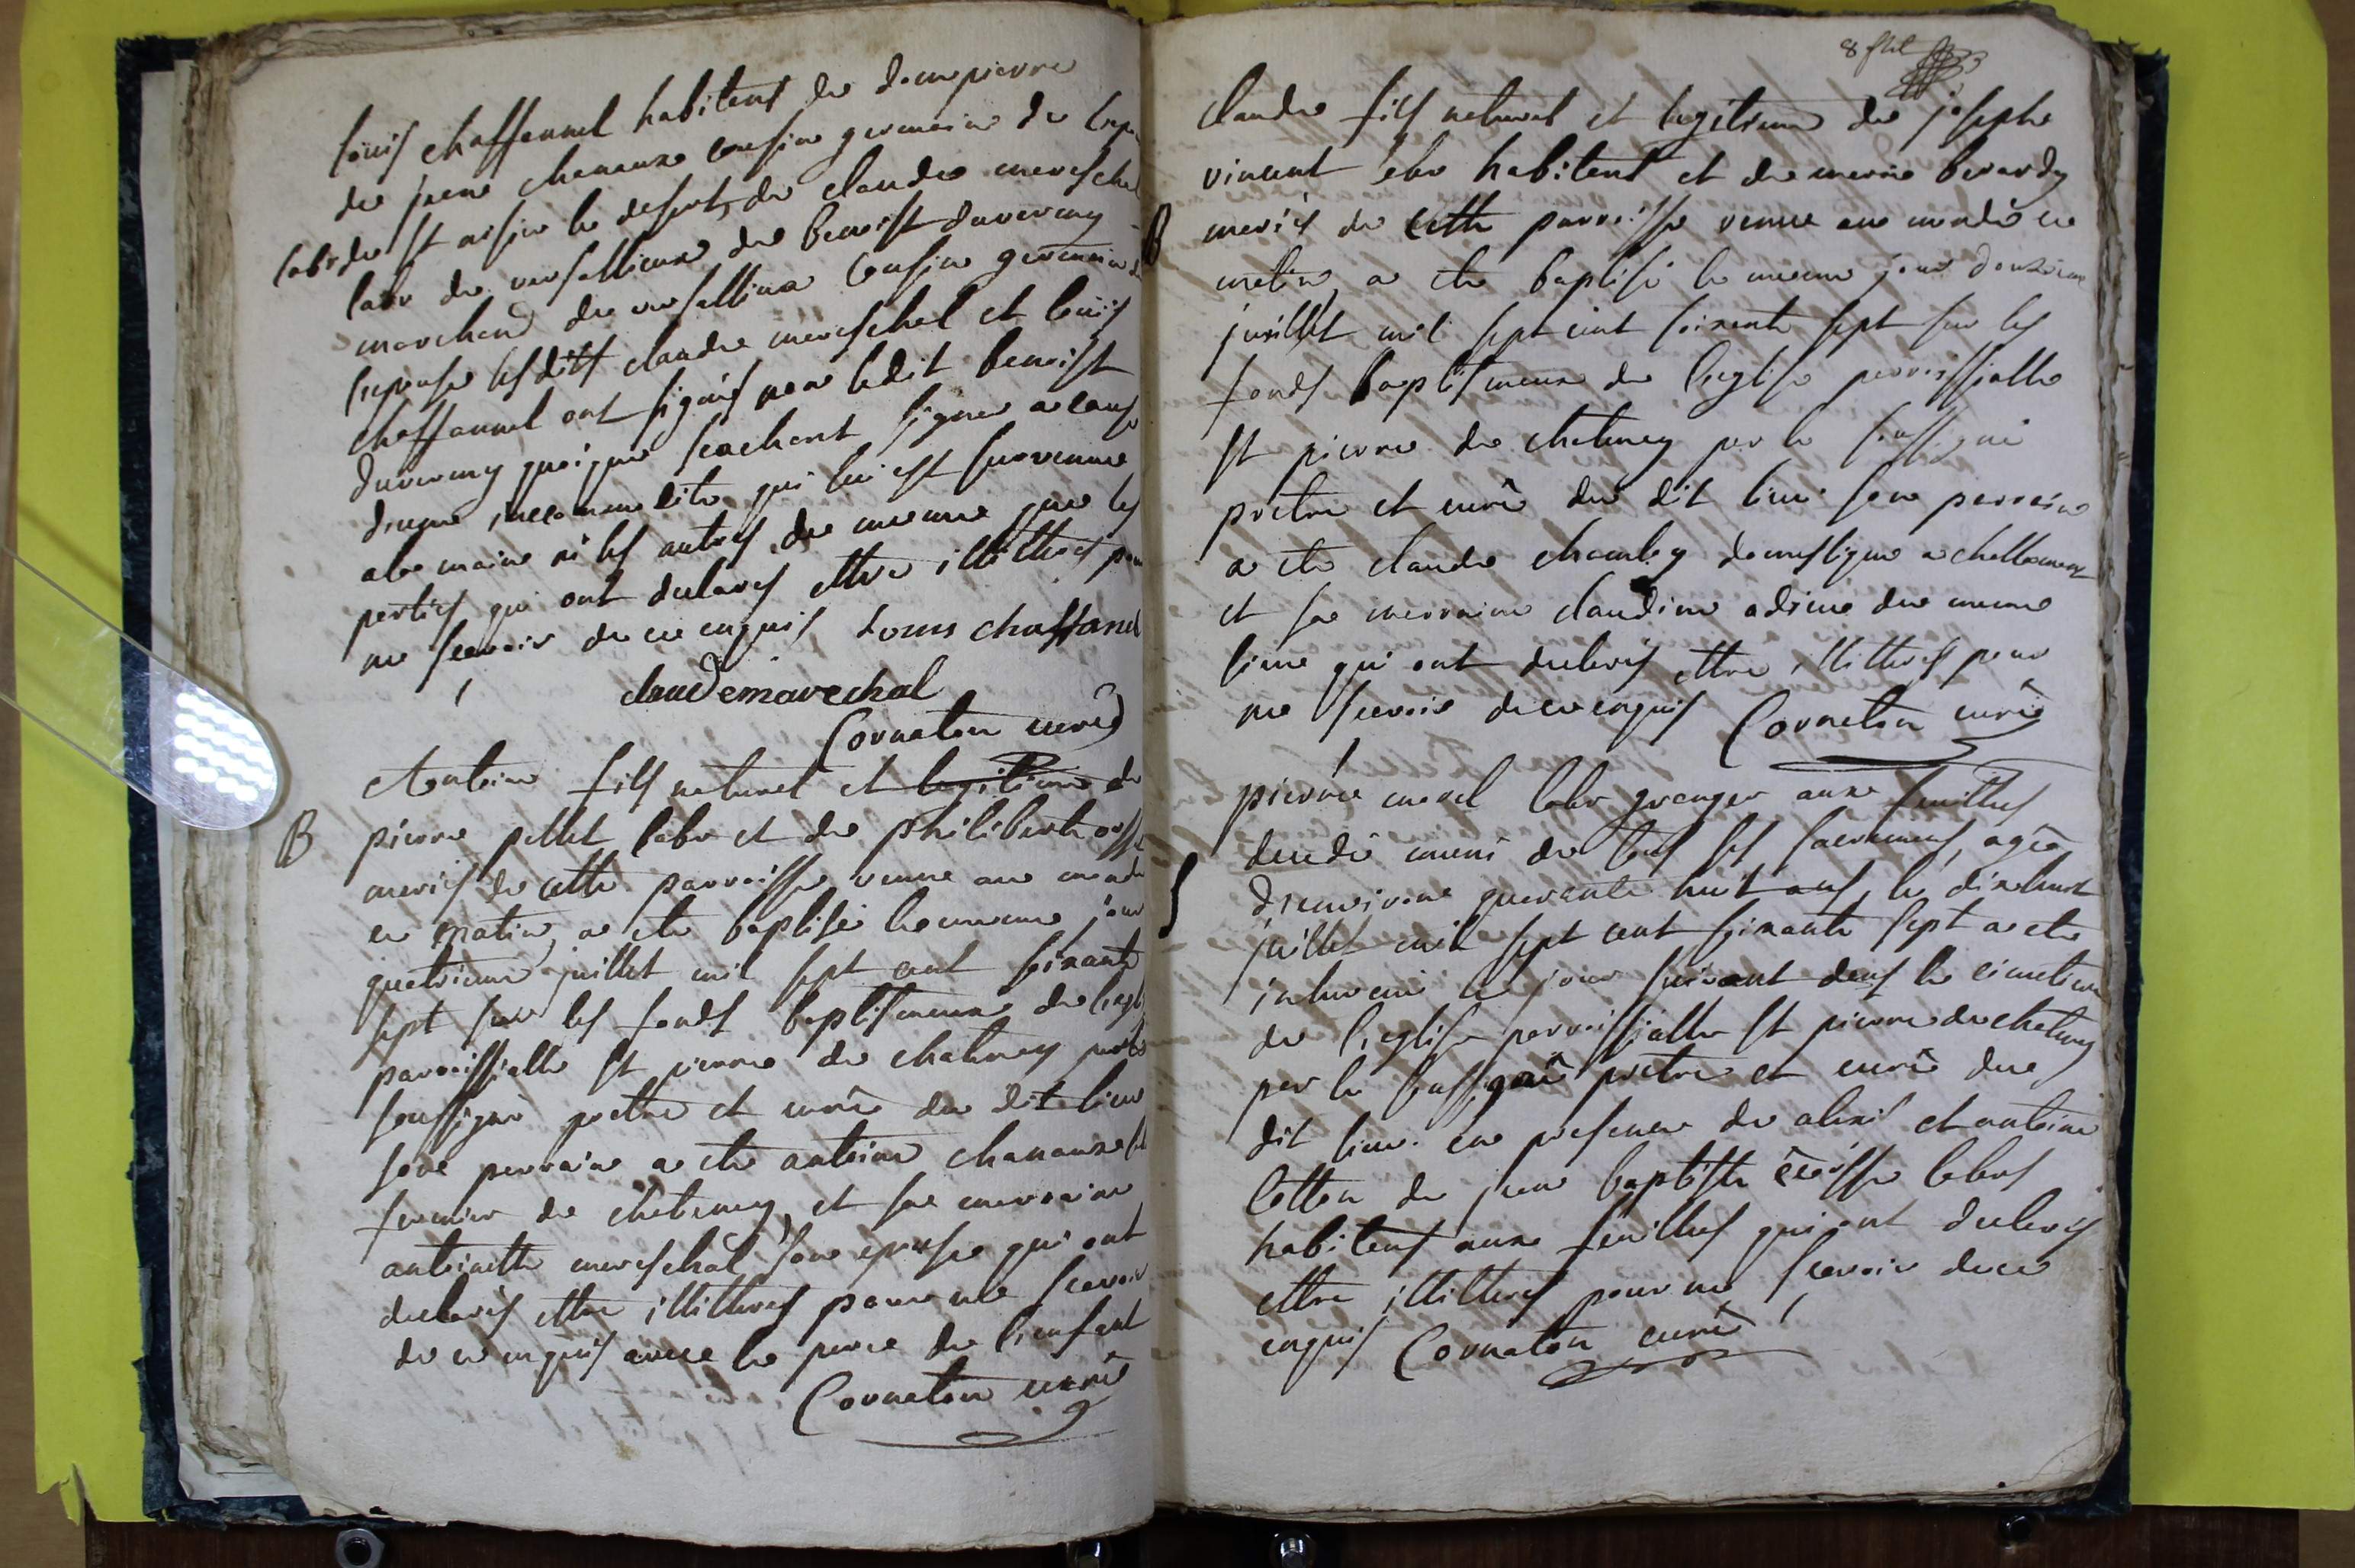 loüis chaffannel habitant de dompierre
de jean chanaux cousin germain de
labr de st nisier le desert, de claude mareschal
labr de versallieux de benoist duverney
marchand de versallieux cousin germain de
l'epouse lesdits claude mareschal et loüis
chaffannel ont signés non ledit benoist
duverney quoique scachant signer a cause
d'une incommodite qui lui est survenue
a la main ni les autres de meme que les
parties qui ont declarés ettre illitterés pour
ne scavoir de ce enquis Louis chaffanel
claudemarechal
Cornaton curé
Antoine fils naturel et legitime de
B pierre pellet labr et de philiberte
mariés de cette parroisse venu au monde
ce matin, a ete baptisé le meme jour
quatrieme juillet mil sept cent soixante
sept sur les fonds baptismaux de l'eglise
parroissialle st pierre de chatenay par le
soussigné pretre et curé du dit lieu
son parrain a ete antoine chanaux
fermier de chatenay, et sa marraine
antoinette mareschal son epouse qui ont
declarés ettre illitterés pour ne scavoir
de ce enquis avec le pere de l'enfant
Cornaton curé
8 flet
claude fils naturel et legitime de joseph
vincent labr habitant et de marie berardy
B mariés de cette parroisse venu au monde ce
matin, a ete baptisé le meme jour douzieme
juillet mil sept cent soixante sept sur les
fonds baptismaux de l'eglise parroissialle
st pierre de chatenay par le soussigné
pretre et curé du dit lieu son parrain
a ete claude chamba y domestique a chattenay
et sa marraine claudine adine du meme
lieu qui ont declarés ettre illitterés pour
ne scavoir de ce enquis Cornaton curé
pierre morel labr granger aux feuilles
decedé muni de tous les sacremens, agé
S d'environ quarante huit ans, le dixhuit
juillet mil sept cent soixante sept a ete
inhumé le jour suivant dans le cimetiere
de l'eglise parroissialle st pierre de chatenay
par le soussigné pretre et curé du
dit lieu en presence de alexis et antoine
cotton de jean baptiste labrs
habitans aux feuilles qui ont declarés
ettre illitterés pour ne scavoir de ce
enquis Cornaton curé